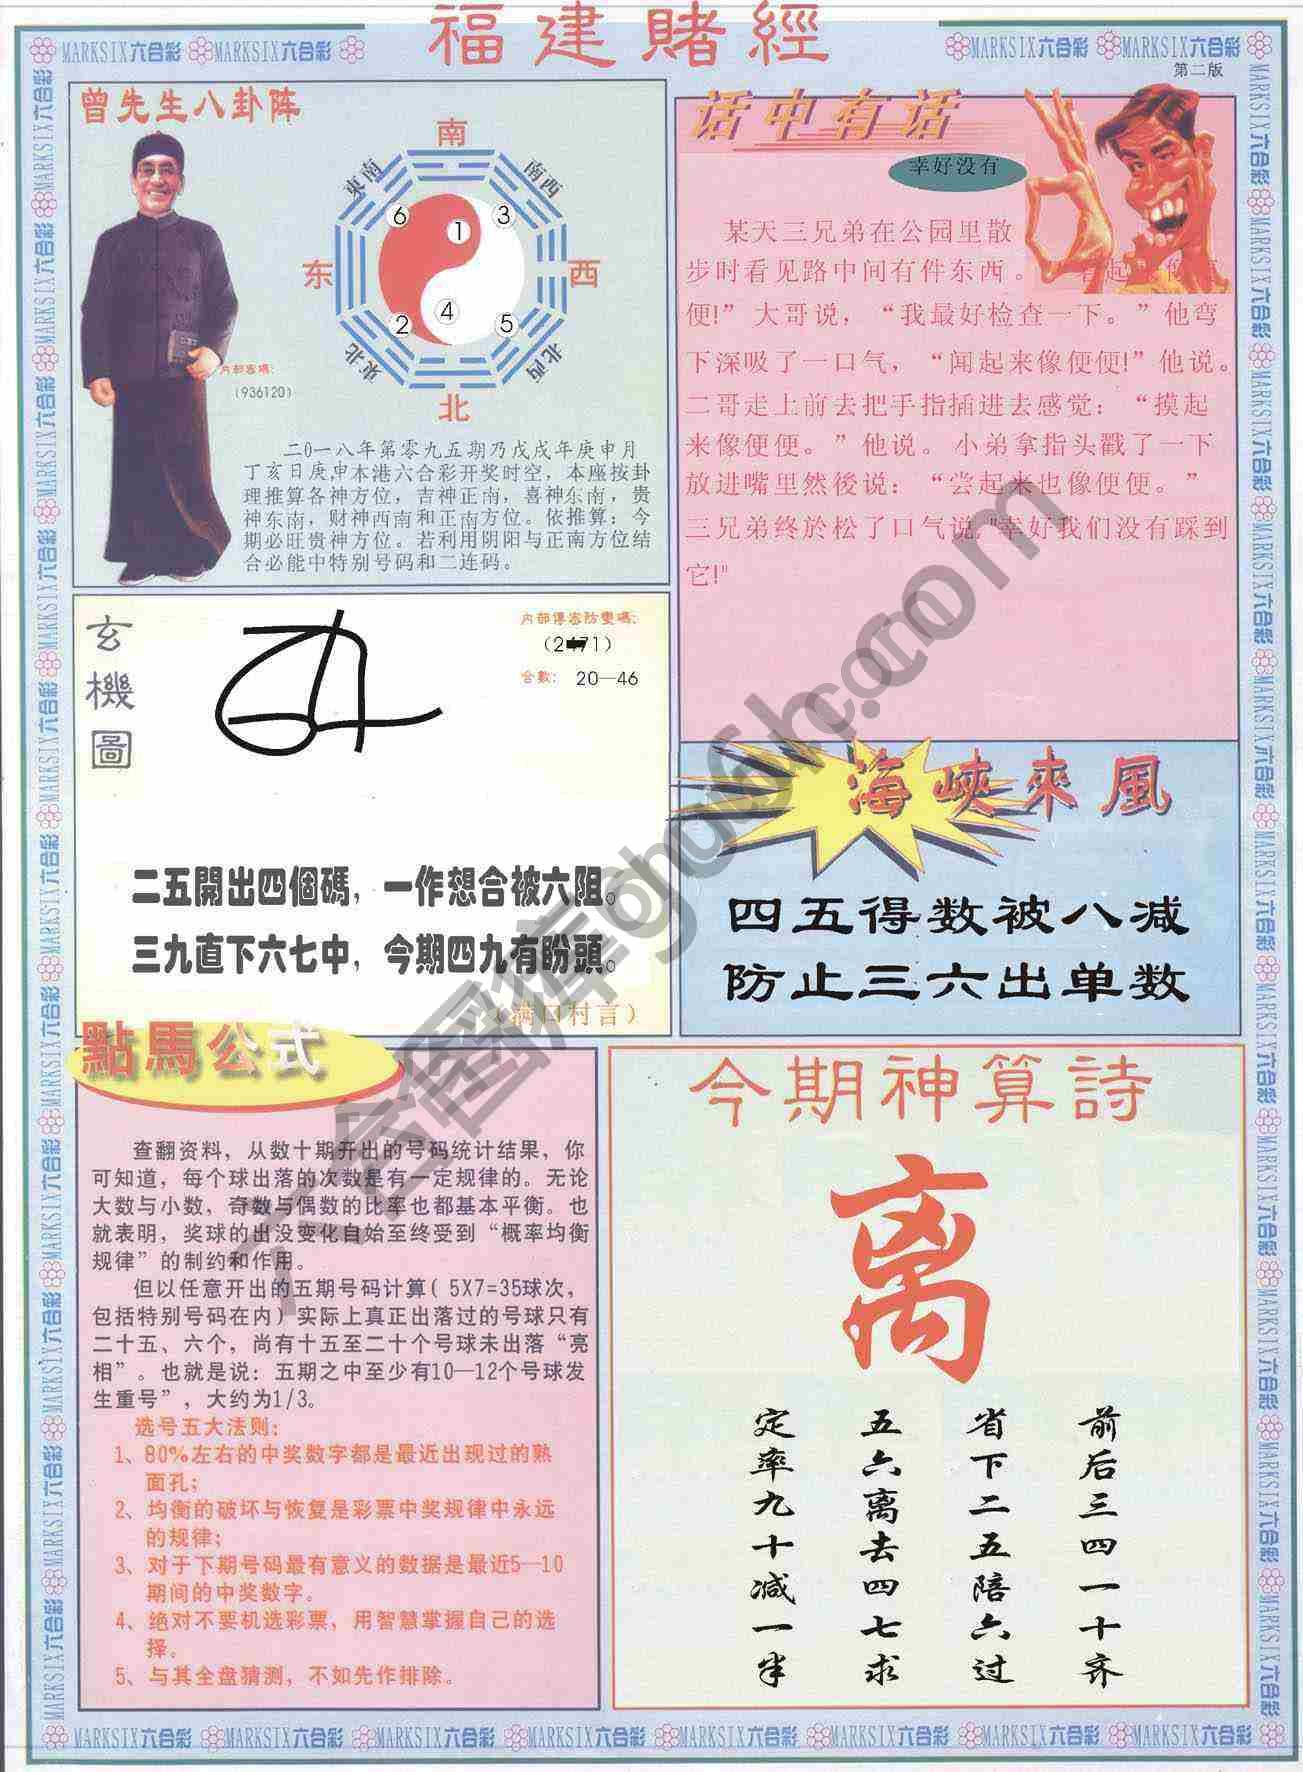 福建賭經
MARKSIX六合彩 MARKSIX六合彩
MARKSIX六合彩 MARKSIX六合彩
第二版
曾先生八卦阵
南
東南
南西
6
1
3
东
西
4
2
5
東北
北西
北
内部密碼：
（936120）
二0一八年第零九五期乃戊戌年庚申月
丁亥日庚申本港六合彩开奖时空，本座按卦
理推算各神方位，吉神正南，喜神东南，贵
神东南，财神西南和正南方位。依推算：今
期必旺贵神方位。若利用阴阳与正南方位结
合必能中特别号码和二连码。
话中有话
幸好没有
某天三兄弟在公园里散
步时看见路中间有件东西。
便!”大哥说，“我最好检查一下。”他弯
下深吸了一口气，“闻起来像便便!”他说。
二哥走上前去把手指插进去感觉：“摸起
来像便便。”他说。小弟拿指头戳了一下
放进嘴里然後说：“尝起来也像便便。”
三兄弟终於松了口气说"幸好我们没有踩到
它!"
玄機圖
内部傳密防變碼：
（2 71）
合數： 20—46
二五開出四個碼，一作想合被六阻。
三九直下六七中，今期四九有盼頭。
（满口村言）
海峽來風
四五得数被八减
防止三六出单数
點馬公式
查翻资料，从数十期开出的号码统计结果，你
可知道，每个球出落的次数是有一定规律的。无论
大数与小数，奇数与偶数的比率也都基本平衡。也
就表明，奖球的出没变化自始至终受到“概率均衡
规律”的制约和作用。
但以任意开出的五期号码计算（5X7=35球次，
包括特别号码在内）实际上真正出落过的号球只有
二十五、六个，尚有十五至二十个号球未出落“亮
相”。也就是说：五期之中至少有10—12个号球发
生重号”，大约为1/3。
选号五大法则：
1、80%左右的中奖数字都是最近出现过的熟
面孔；
2、均衡的破坏与恢复是彩票中奖规律中永远
的规律；
3、对于下期号码最有意义的数据是最近5—10
期间的中奖数字。
4、绝对不要机选彩票，用智慧掌握自己的选
择。
5、与其全盘猜测，不如先作排除。
今期神算詩
离
前后三四一十齐
省下二五陪六过
五六离去四七求
定率九十减一半
MARKSIX六合彩 MARKSIX六合彩 MARKSIX六合彩 MARKSIX六合彩 MARKSIX六合彩 MARKSIX六合彩 MARKSIX六合彩 MARKSIX六合彩